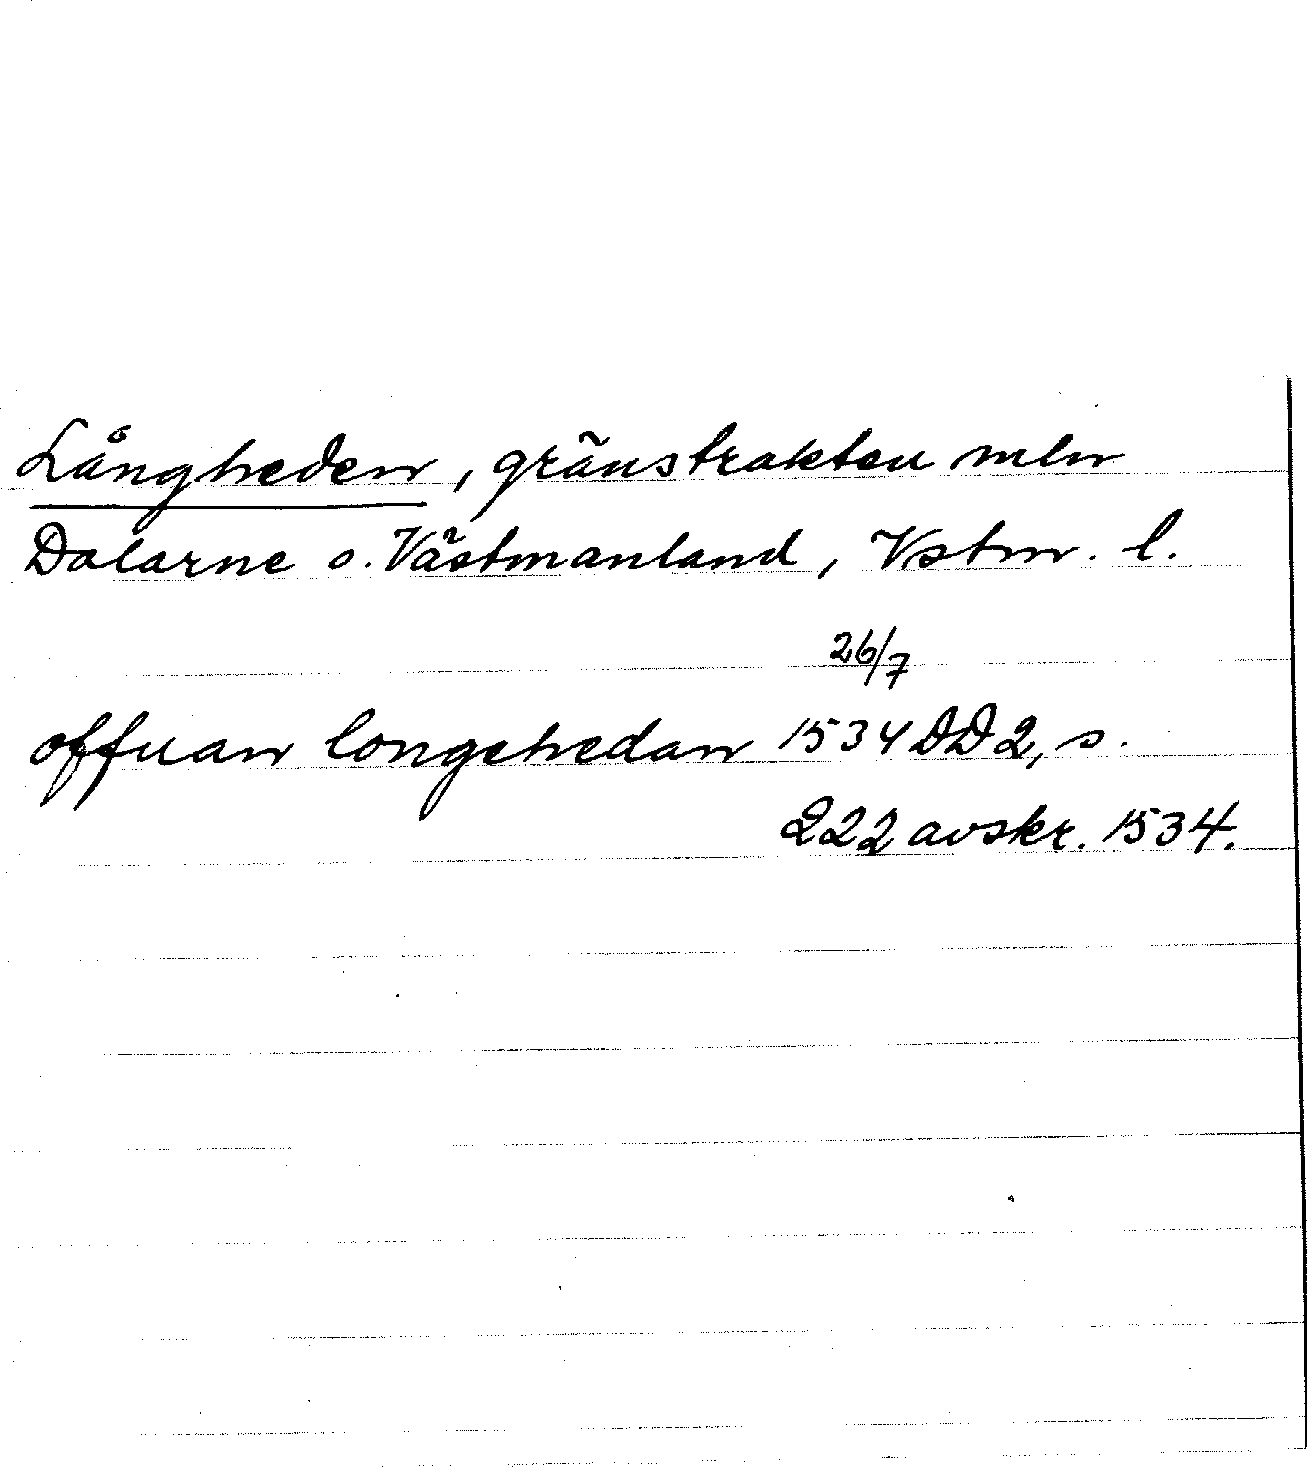 Långheden, gränstrakten mln
Dalarne o. Västmanland, Vstm. l.
26/7
offuan longehedan 1534 DD 2, s.
222 avskr. 1534.